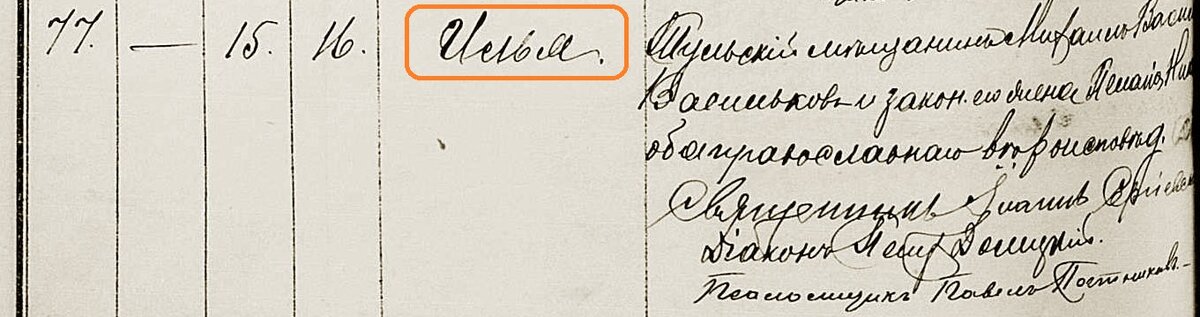 77. — 15. 16. Илья. Тульскій мѣщанинъ Михаилъ Васи
Васильковъ и закон. его жена Пелагія Ни
оба православнаго вѣроисповѣд.
Священникъ Іоаннъ
Діаконъ Пётръ Донецкій.
Псаломщикъ Павелъ Постниковъ.